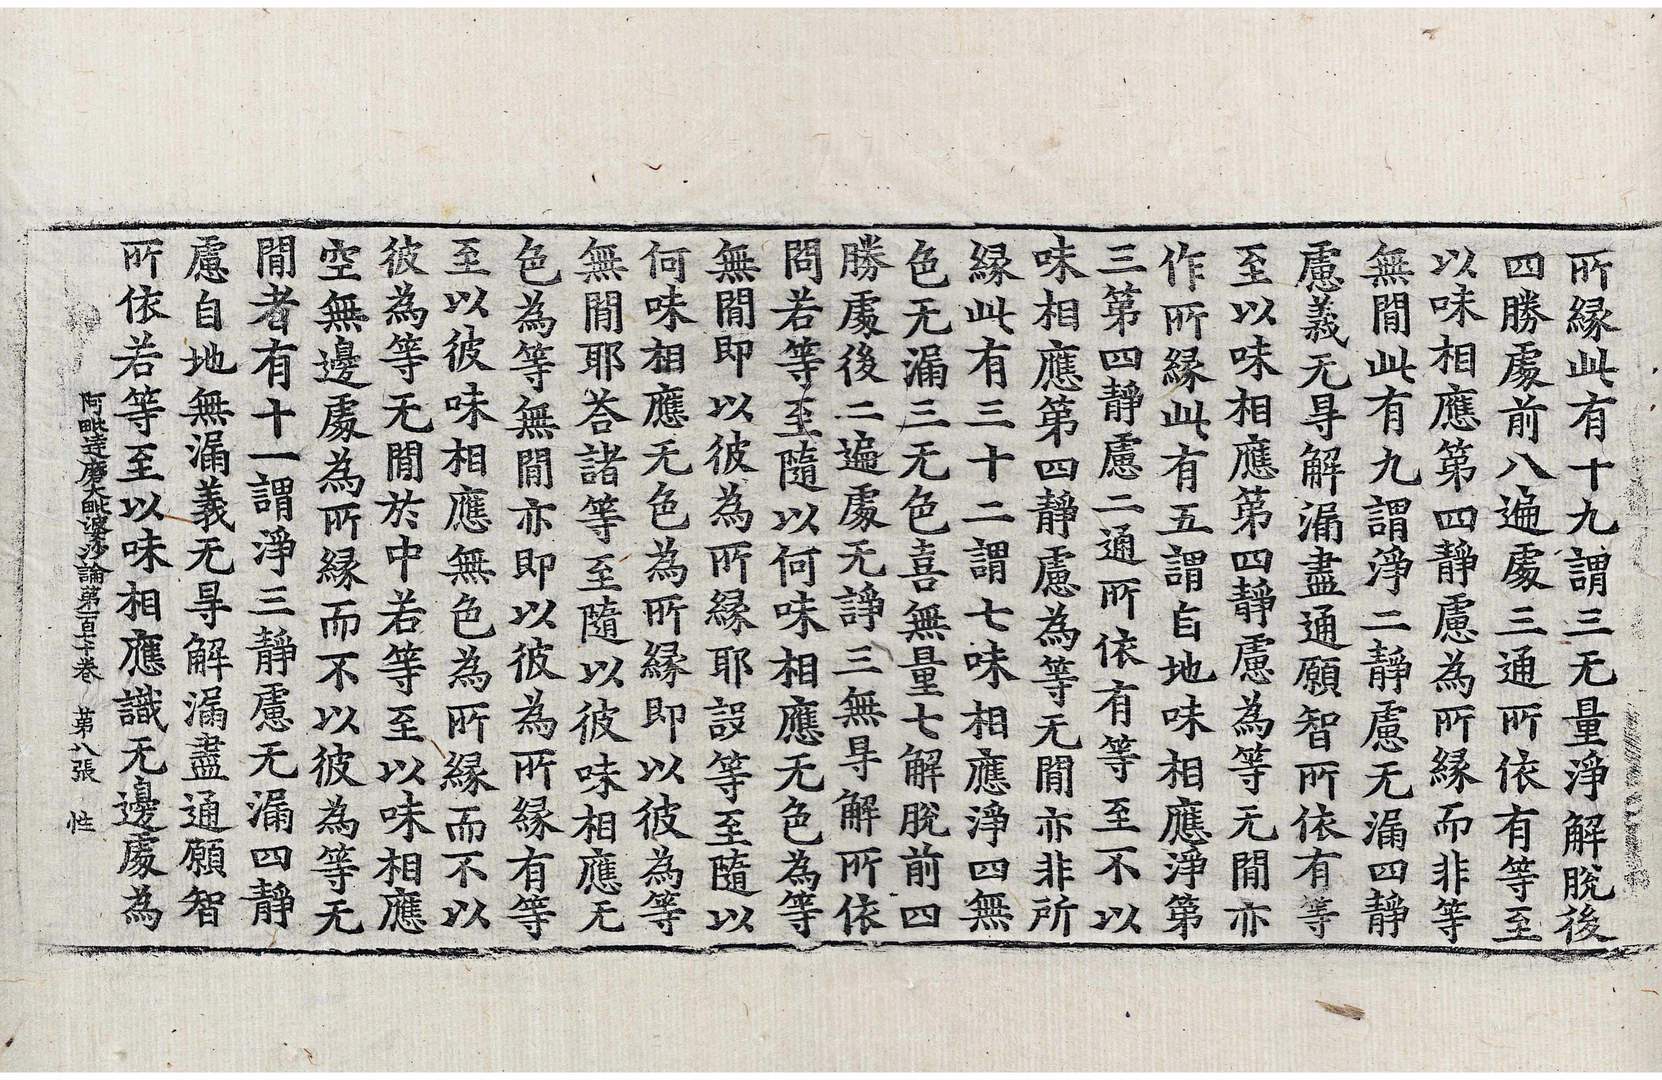 所縁此有十九謂三无量淨解脫後
四勝處前八遍處三通所依有等至
以味相應第四靜慮為所縁而非等
無閒此有九謂淨二靜慮无漏四靜
慮義无㝵解漏盡通願智所依有等
至以味相應第四靜慮為等无閒亦
作所縁此有五謂自地味相應淨第
三第四靜慮二通所依有等至不以
味相應第四靜慮為等无閒亦非所
縁此有三十二謂七味相應淨四無
色无漏三无色喜無量七解脫前四
勝處後二遍處无諍三無㝵解所依
問若等至隨以何味相應无色為等
無閒即以彼為所縁耶設等至隨以
何味相應无色為所縁即以彼為等
無閒耶荅諸等至隨以彼味相應无
色為等無閒亦即以彼為所縁有等
至以彼味相應無色為所縁而不以
彼為等无閒於中若等至以味相應
空無邊處為所縁而不以彼為等无
閒者有十一謂淨三靜慮无漏四靜
慮自地無漏義无㝵解漏盡通願智
所依若等至以味相應識无邊處為
阿毗達磨大毗婆沙論第一百七十卷 第八張 性